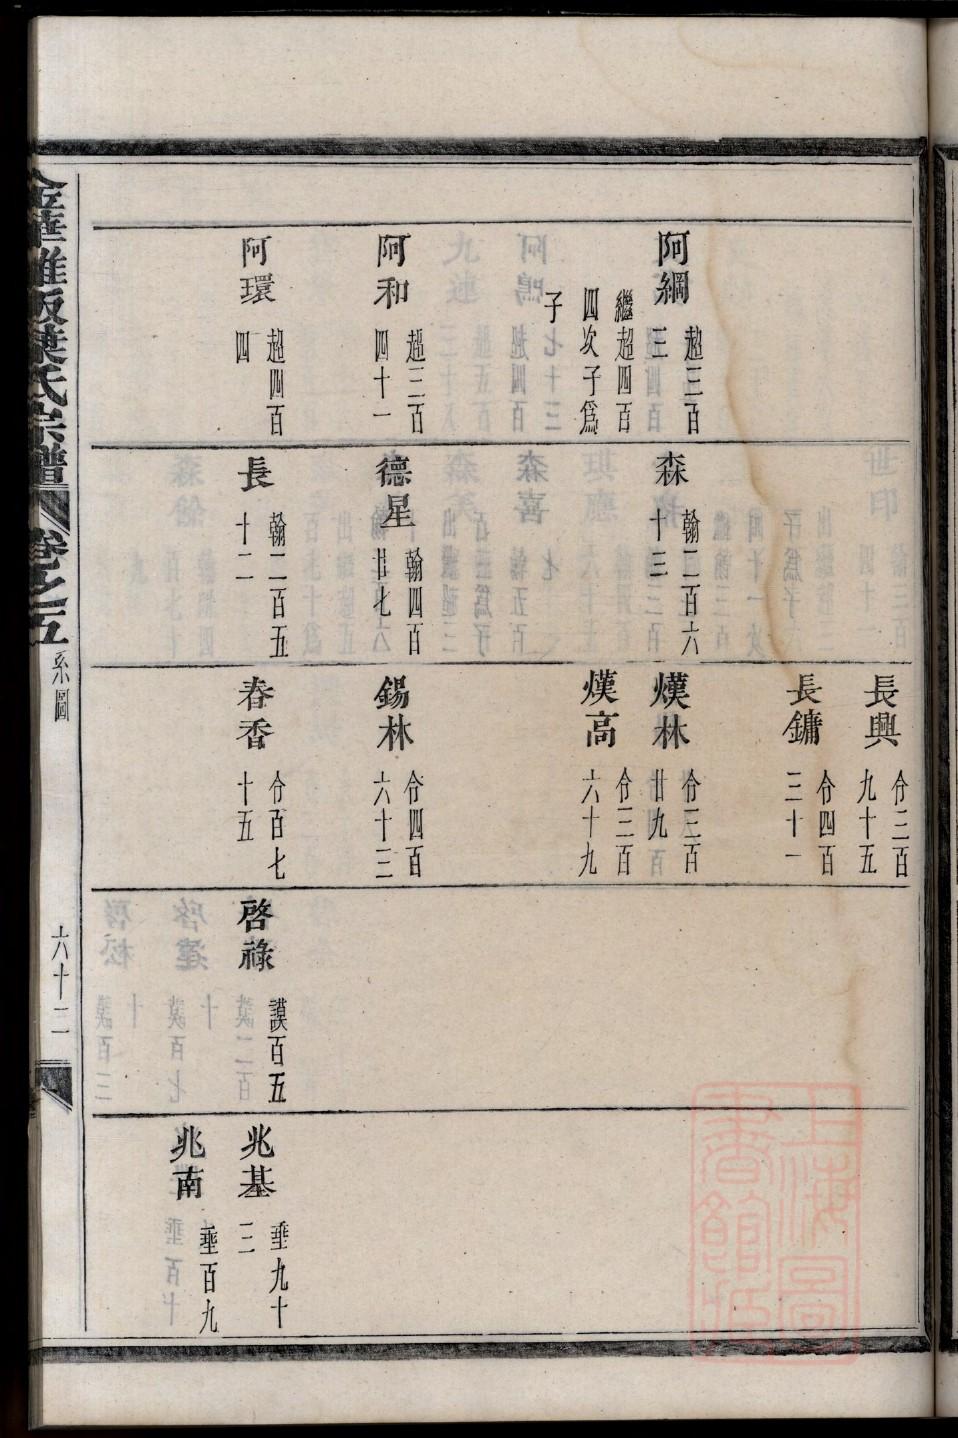 阿綱
超三百
三
繼超四百
四次子爲
子
阿和
超三百
四十一
阿環
超四百
四
森
翰二百六
十三
德星
翰四百
廿七
長
翰二百五
十二
長興
仱三百
九十五
長鏞
仱四百
三十一
熯林
仱三百
廿九
熯高
仱三百
六十九
錫林
仱四百
六十三
春香
仱百七
十五
啓祿
謨百五
兆基
垂九十
二
兆南
垂百九
葉氏宗譜
卷之五
系圖
六十二
上海圖
書館藏